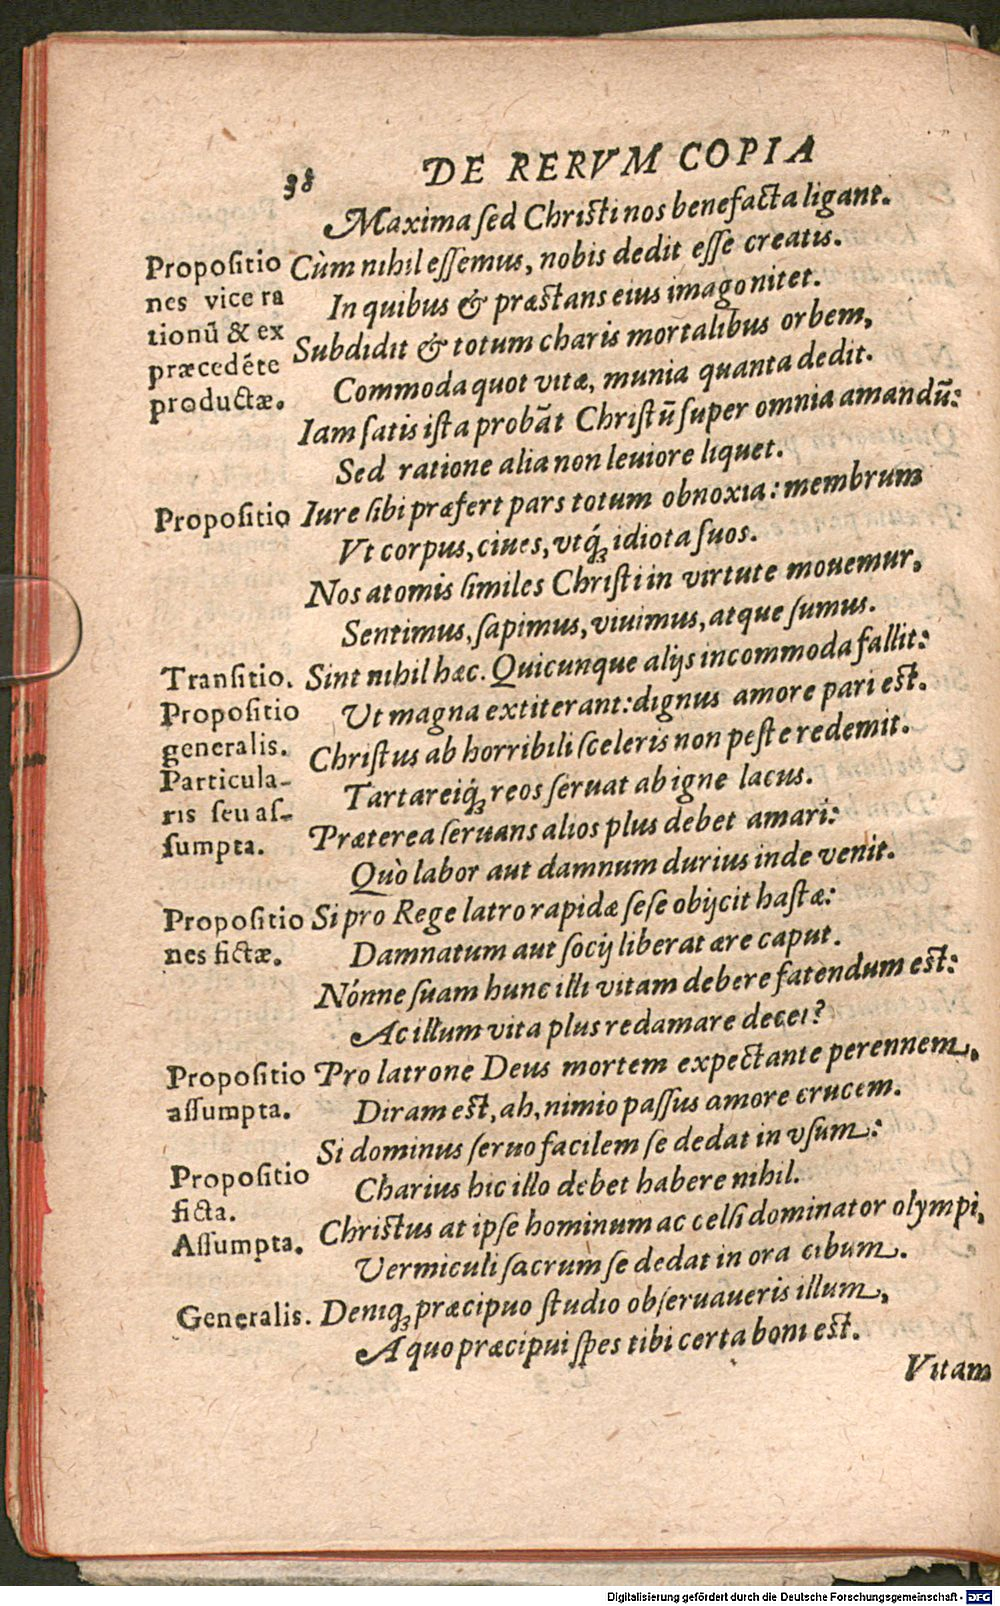 38 DE RERVM COPIA
Maxima sed Christi nos benefacta ligant.
Propositio
nes vice ra
tionū & ex
præcedēte
productæ.
Cùm nihil essemus, nobis dedit esse creatis.
In quibus & præstans eius imago nitet.
Subdidit & totum charis mortalibus orbem,
Commoda quot vitæ, munia quanta dedit.
Iam satis ista probāt Christū super omnia amandū:
Sed ratione alia non leuiore liquet.
Propositio
Iure sibi præfert pars totum obnoxia: membrum
Vt corpus, ciues, vtq́ꝫ idiota suos.
Nos atomis similes Christi in virtute mouemur,
Sentimus, sapimus, viuimus, atque sumus.
Transitio.
Sint nihil hæc. Quicunque alijs incommoda fallit:
Propositio
generalis.
Vt magna extiterant: dignus amore pari est.
Christus ab horribili sceleris non peste redemit.
Particula-
ris seu as-
sumpta.
Tartareiq́ꝫ reos seruat ab igne lacus.
Præterea seruans alios plus debet amari:
Quò labor aut damnum durius inde venit.
Propositio
nes fictæ.
Si pro Rege latro rapidæ sese obijcit hastæ:
Damnatum aut socij liberat ære caput.
Nónne suam hunc illi vitam debere fatendum est:
Ac illum vita plus redamare decet?
Propositio
assumpta.
Pro latrone Deus mortem expectante perennem,
Diram est, ah, nimio passus amore crucem.
Si dominus seruo facilem se dedat in vsum:
Propositio
ficta.
Charius hic illo debet habere nihil.
Assumpta.
Christus at ipse hominum ac celsi dominator olympi,
Vermiculi sacrum se dedat in ora cibum.
Generalis.
Deniqꝫ præcipuo studio obseruaueris illum,
A quo præcipui spes tibi certa boni est.
Vitam
Digitalisierung gefördert durch die Deutsche Forschungsgemeinschaft - DFG